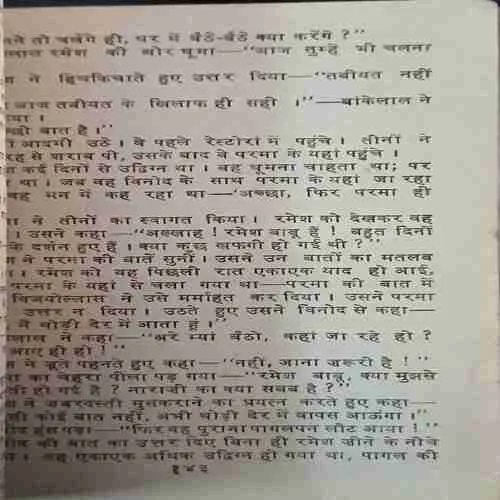 तने तो चलेंगे ही, घर में बैठे-बैठे क्या करेंगे ?"
लाल रमेश की ओर घूमा—"आज तुम्हें भी चलना
ने हिचकिचाते हुए उत्तर दिया—"तबीयत नहीं
आज तबीयत के खिलाफ ही सही ।"—बांकेलाल ने
या ।
छी बात है ।"
आदमी उठे । वे पहले रेस्टोरां में पहुंचे । तीनों ने
रह से शराब पी, उसके बाद वे परमा के यहां पहुंचे ।
कई दिनों से उद्विग्न था । वह घूमना चाहता था; पर
था । जब वह विनोद के साथ परमा के यहां जा रहा
वह मन में कह रहा था—'अच्छा, फिर परमा ही
ने तीनों का स्वागत किया । रमेश को देखकर वह
। उसने कहा—"अल्लाह ! रमेश बाबू हैं ! बहुत दिनों
के दर्शन हुए हैं । क्या कुछ खफगी हो गई थी ?"
ने परमा की बातें सुनीं । उसने उन बातों का मतलब
। रमेश को वह पिछली रात एकाएक याद हो आई,
परमा के यहां से चला गया था—परमा की बात में
विजयोल्लास ने उसे मर्माहत कर दिया । उसने परमा
उत्तर न दिया । उठते हुए उसने विनोद से कहा—
मैं थोड़ी देर में आता हूं ।"
लाल ने कहा—"अरे म्यां बैठो, कहां जा रहे हो ?
आए ही हो !"
ने जूते पहनते हुए कहा—"नहीं, जाना ज़रूरी है !"
का चेहरा पीला पड़ गया—"रमेश बाबू, क्या मुझसे
हो गई है ? नाराज़ी का क्या सबब है ?"
ने ज़बरदस्ती मुसकराने का प्रयत्न करते हुए कहा—
कोई बात नहीं, अभी थोड़ी देर में वापस आऊंगा ।"
हंस पड़ा—"फिर वह पुराना पागलपन लौट आया !"
की बात का उत्तर दिए बिना ही रमेश ज़ीने के नीचे
। वह एकाएक अधिक उद्विग्न हो गया था, पागल की
१४३